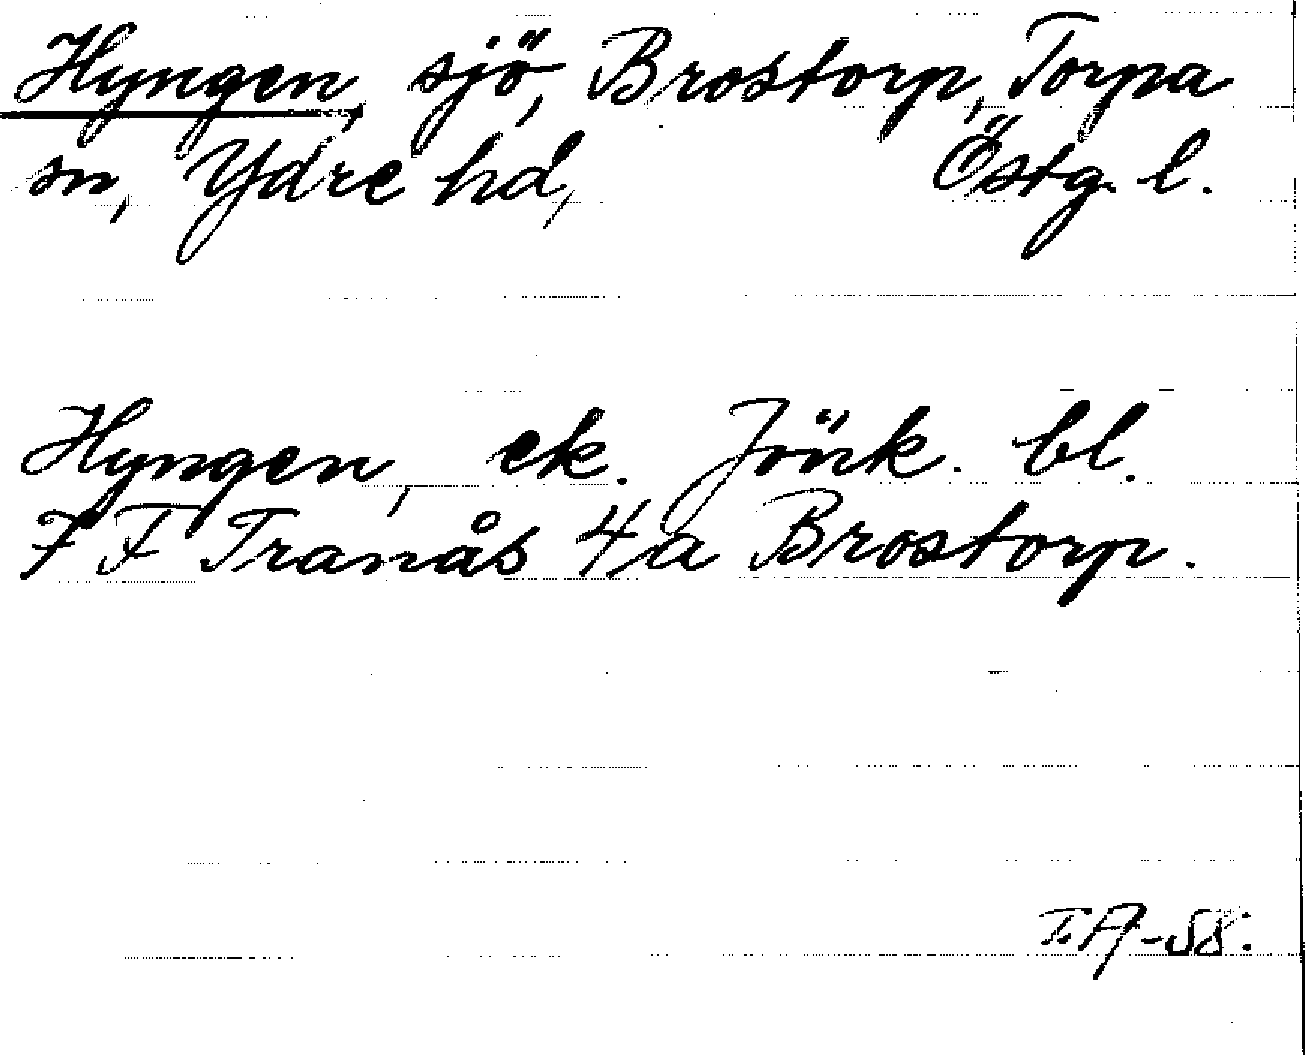 Hyngen, sjö, Brostorp, Torpa
sn, Ydre hd, Östg. l.
Hyngen, ek. Jönk. bl.
7 F Tranås 4a Brostorp.
F.A-58.